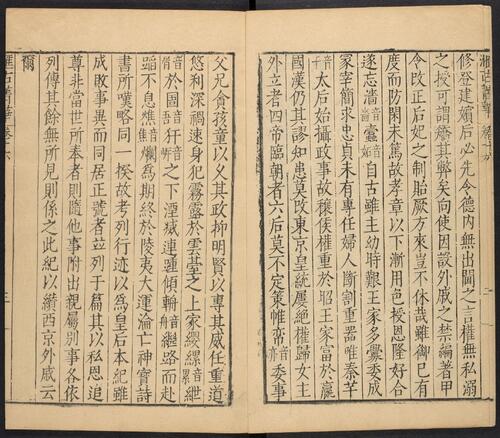 滙古菁華 卷十六 二
修登建嬪后必先令德内無出閫之言權無私溺
之授可謂矯其弊矣向使因設外戚之禁編著甲
令改正后妃之制貽厥方來豈不休哉雖御已有
度而防閑未篤故孝章以下漸用色授恩隆好合
遂忘淄音蠹音妬自古雖主幼時艱王家多釁委成
冢宰簡求忠貞未有專任婦人斷割重器唯秦芊
音太后始攝政事故穰侯權重於昭王家富於嬴
國漢仍其謬知患莫改東京皇統屢絕權歸女主
外立者四帝臨朝者六后莫不定策帷帟音亦委事
父兄貪孩童以久其政抑明賢以專其威任重道
悠利深禍速身犯霧露於雲臺之上家纓縲音累紲
音於圄音吾犴音岸之下湮滅連踵傾輈音舟繼路而赴
蹈不息燋音焦爛爲期終於陵夷大運淪亡神寶詩
書所嘆略同一揆故考列行迹以爲皇后本紀雖
成敗事異而同居正號者並列于篇其以私恩追
尊非當世所奉者則隨他事附出親屬別事各依
列傳其餘無所見則係之此紀以纘西京外戚云
爾
滙古菁華 卷十六 三